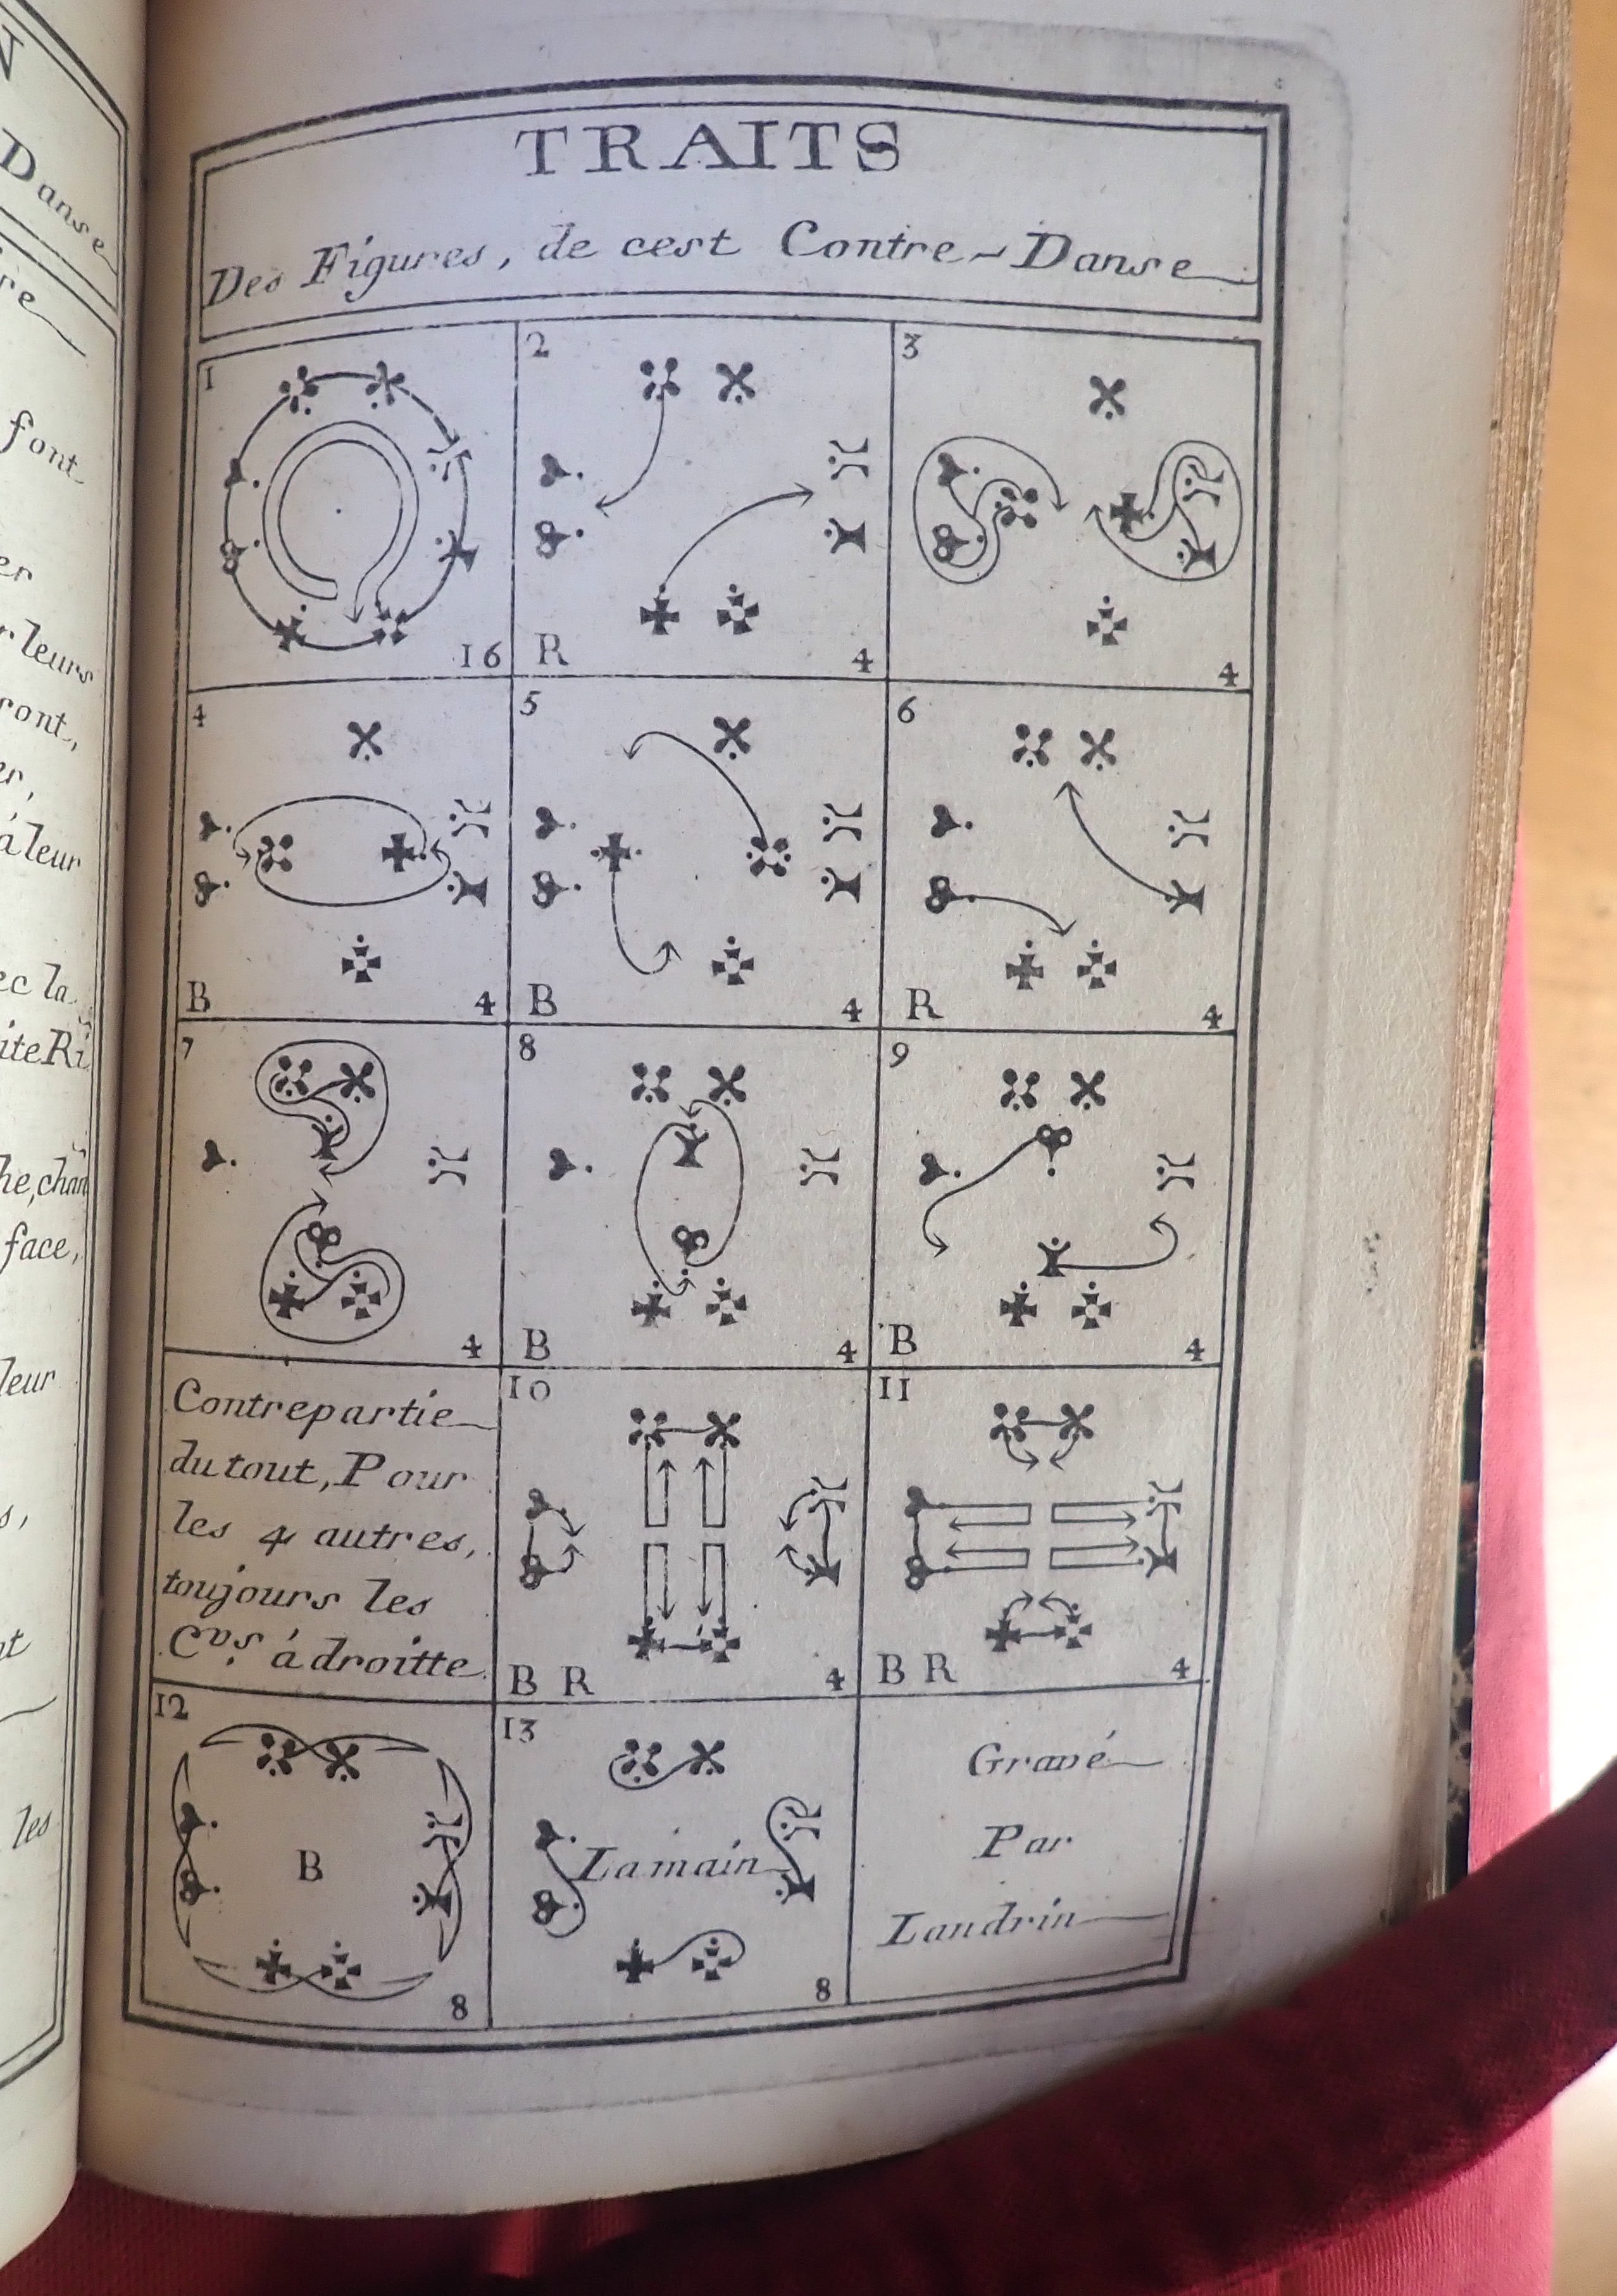 N
Danse
font
TRAITS
Des Figures, de cest Contre-Danse
1
16
2
R
4
3
4
4
B
4
5
B
4
6
R
4
7
4
8
B
4
9
B
4
Contrepartie
du tout, Pour
les 4 autres,
toujours les
Cvs. á droitte
10
B R
4
11
B R
4
12
B
8
13
La main
8
Gravé
Par
Landrin
leurs
ront,
á leur
ec la
ite Ri
face,
leur
les